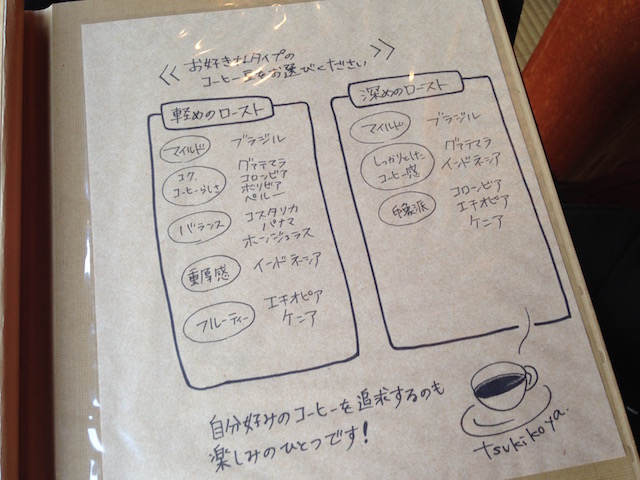 お好きなタイプの
コーヒー豆をお選びください
軽めのロースト
マイルド
ブラジル
コク、
コーヒーらしさ
グァテマラ
コロンビア
ボリビア
ペルー
バランス
コスタリカ
パナマ
ホーンジュラス
重厚感
インドネシア
フルーティー
エチオピア
ケニア
深めのロースト
マイルド
ブラジル
しっかりとした
コーヒー感
グァテマラ
インドネシア
印象派
コロンビア
エチオピア
ケニア
自分好みのコーヒーを追求するのも
楽しみのひとつです!
tsukikoya.